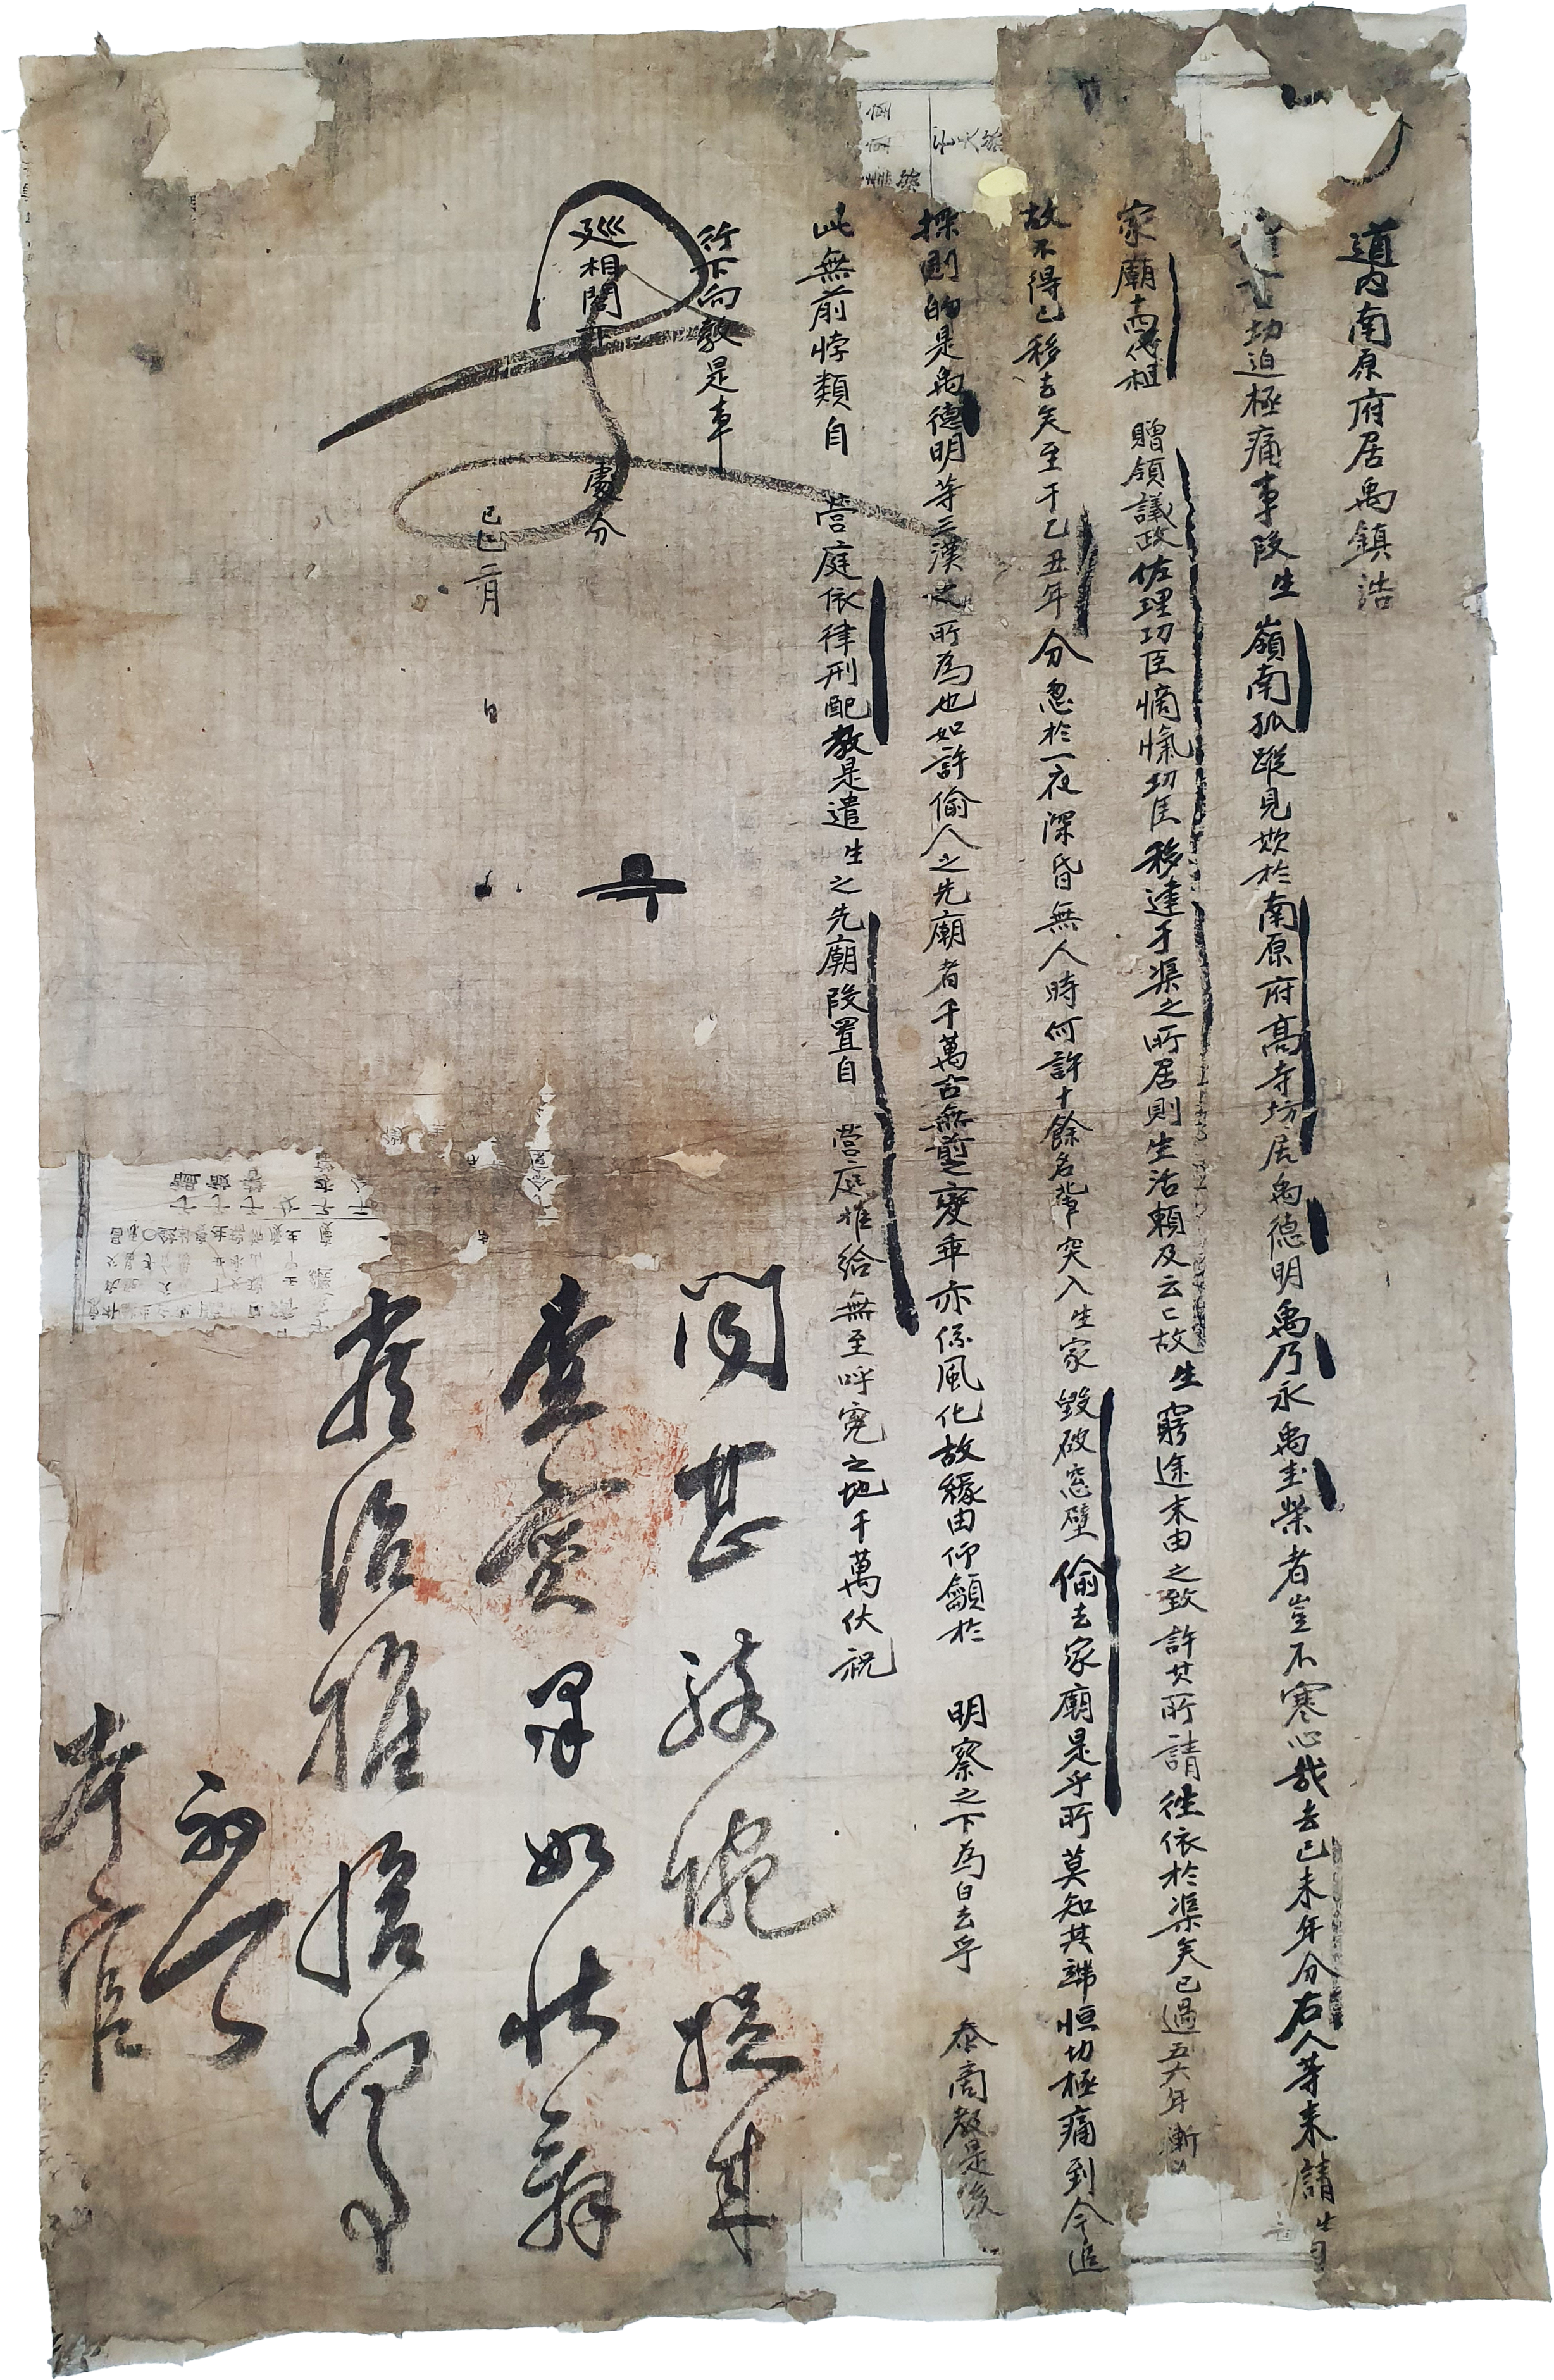 道内南原府居禹鎭浩
切迫極痛事段生嶺南孤蹤見欺於南原府高寺坊居禹德明禹乃永禹圭榮者豈不寒心哉去己未年分右人等來請生
家廟十四代祖 贈領議政佐理功臣 功臣移建于渠之所居則生活賴及云云故生窮途末由之致許其所請徃依於渠矣已過五六年漸
故不得已移去矣至于乙丑年分忽於一夜深昏無人時何許十餘名輩突入生家毁破窓壁偷去家廟是乎所莫知其端恒切極痛到今追
探則的是禹德明等三漢之所為也如許偷人之先廟者千萬古無前之變乖亦係風化故緣由仰籲於 明察之下為白去乎 泰商敎是後
此無前悖類自 營庭依律刑配敎是遣生之先廟段置自 營庭推給無至呼寃之地千萬伏祝
行下向敎是事
廵相閤下 處分
己巳二月 日
聞甚駭惋捉來
査實果如狀辭
嚴治推給宜
向事
本官